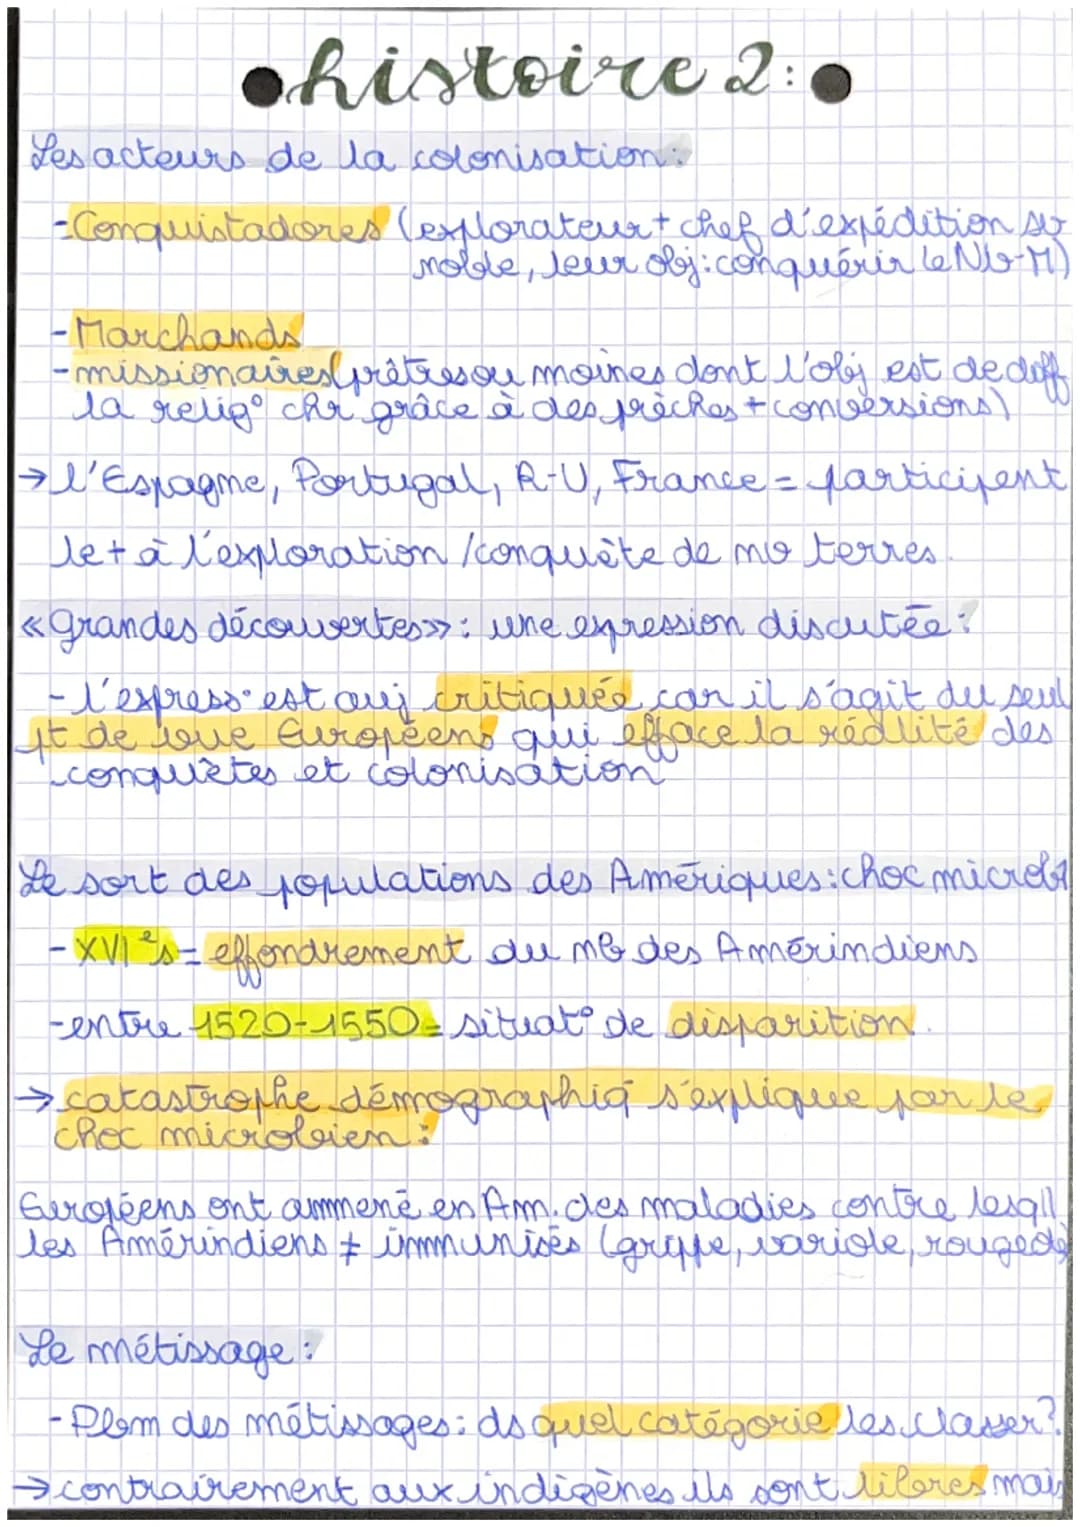 histoire 2:
Les acteurs de la colonisation:
-Conquistadores (explorateur + chef d'expédition sv
noble, leur obj: conquérir le Nv-M)
-Marchands
-missionaires (prêtres ou moines dont l'obj est de diff
la relig° chr grâce à des prêches + conversions)
→ l'Espagne, Portugal, R-U, France = participent
le + à l'exploration / conquête de nv terres.
«Grandes découvertes»: une expression discutée:
-l'express° est auj critiquée car il s'agit du seul
pt de vue Européens qui efface la réalité des
conquêtes et colonisation
Le sort des populations des Amériques: choc microb
-XVIᵉs = effondrement du nb des Amérindiens
-entre 1520-1550 = situat° de disparition.
→ catastrophe démographiq s'explique par le
choc microbien:
Européens ont ammené en Am. des maladies contre lesqll
les Amérindiens ≠ immunisés (grippe, variole, rougeole
Le métissage:
-Pblm des métissages: ds quel catégorie les classer?
→ contrairement aux indigènes ils sont libres mais